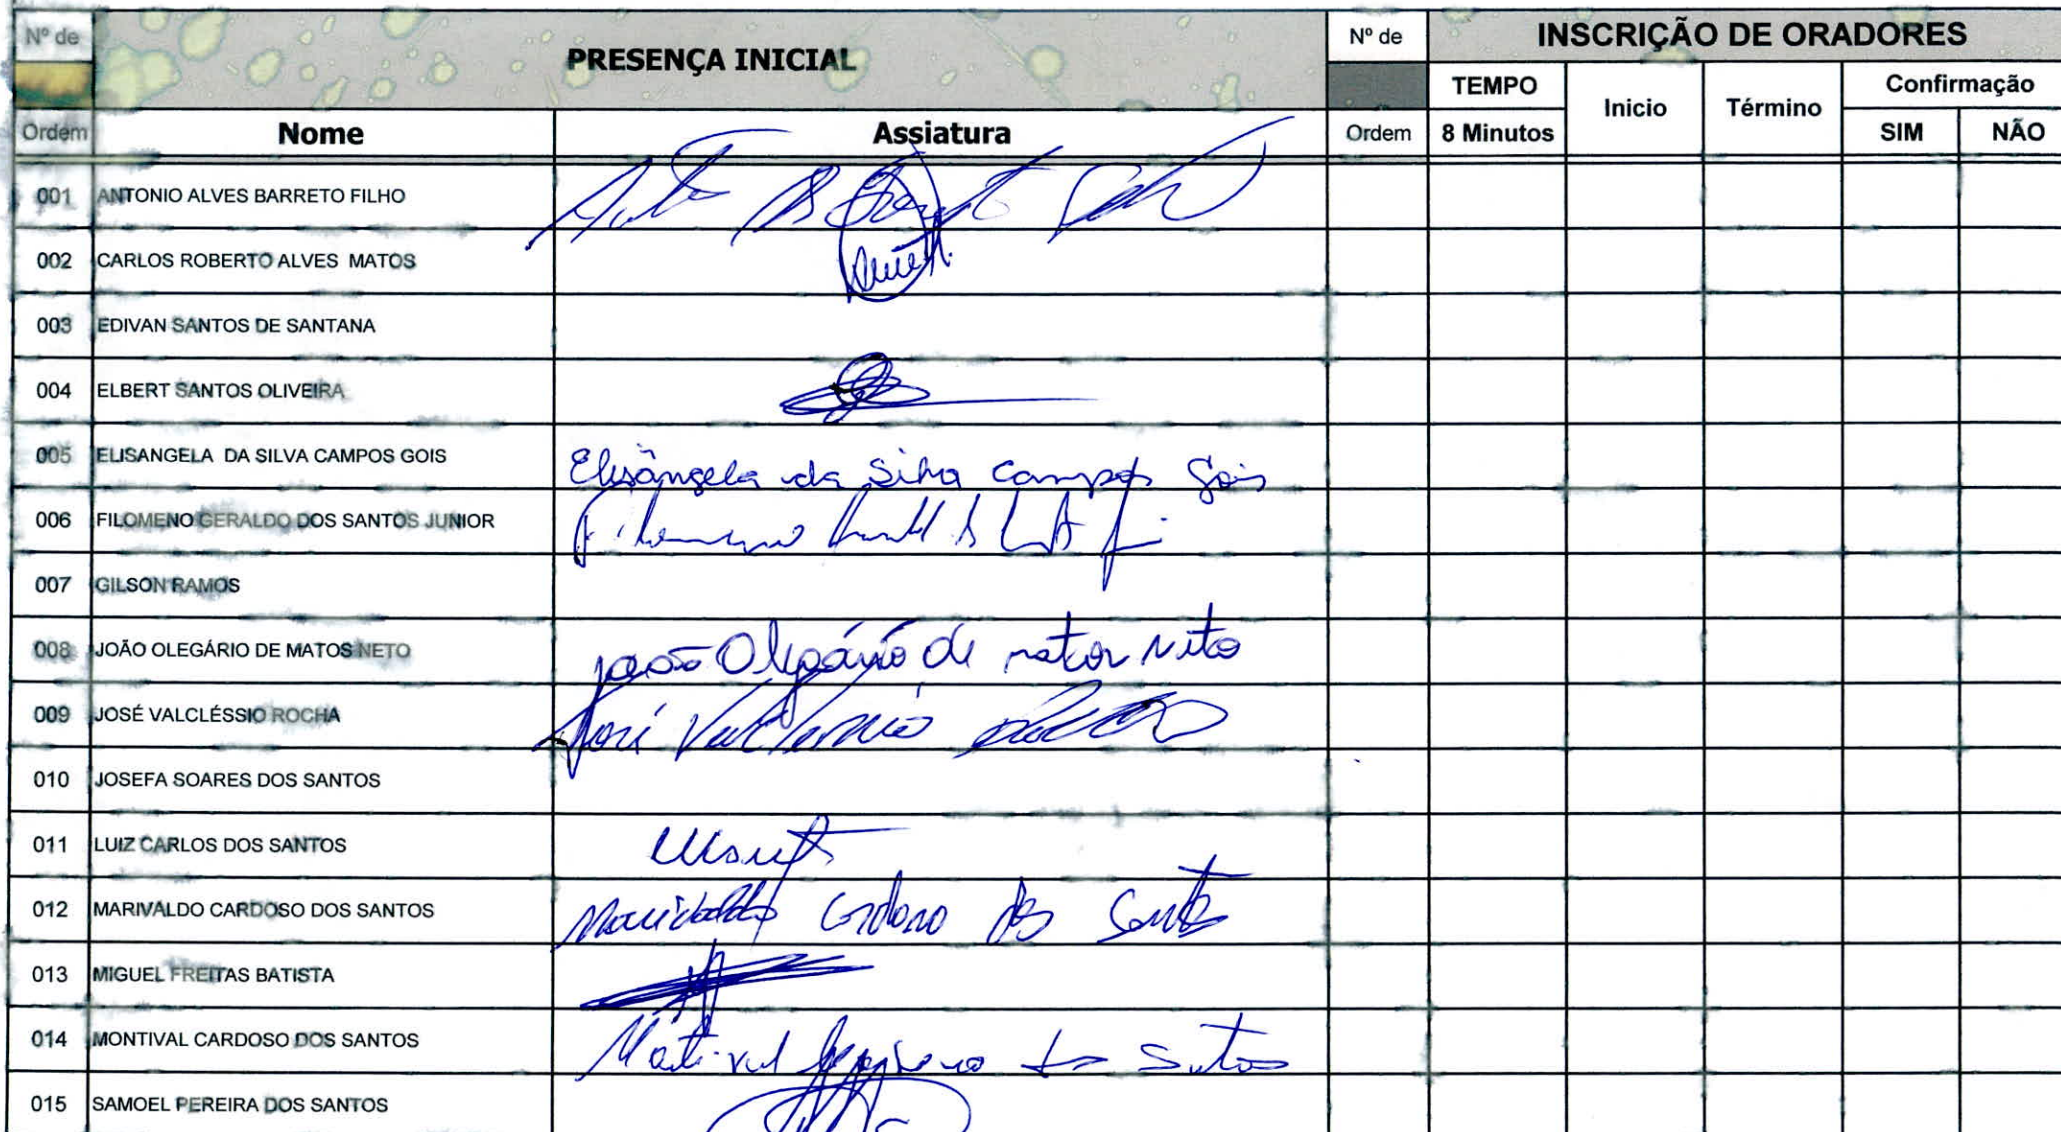 Nº de PRESENÇA INICIAL Nº de INSCRIÇÃO DE ORADORES
TEMPO Inicio Término Confirmação
Ordem Nome Assiatura Ordem 8 Minutos SIM NÃO
001 ANTONIO ALVES BARRETO FILHO
002 CARLOS ROBERTO ALVES MATOS
003 EDIVAN SANTOS DE SANTANA
004 ELBERT SANTOS OLIVEIRA
005 ELISANGELA DA SILVA CAMPOS GOIS Elisângela da Silva Campos Gois
006 FILOMENO GERALDO DOS SANTOS JUNIOR
007 GILSON RAMOS
008 JOÃO OLEGÁRIO DE MATOS NETO João Olegário de Matos Neto
009 JOSÉ VALCLÉSSIO ROCHA José Valclessio
010 JOSEFA SOARES DOS SANTOS
011 LUIZ CARLOS DOS SANTOS
012 MARIVALDO CARDOSO DOS SANTOS Marivaldo Cardoso dos Santos
013 MIGUEL FREITAS BATISTA
014 MONTIVAL CARDOSO DOS SANTOS
015 SAMOEL PEREIRA DOS SANTOS